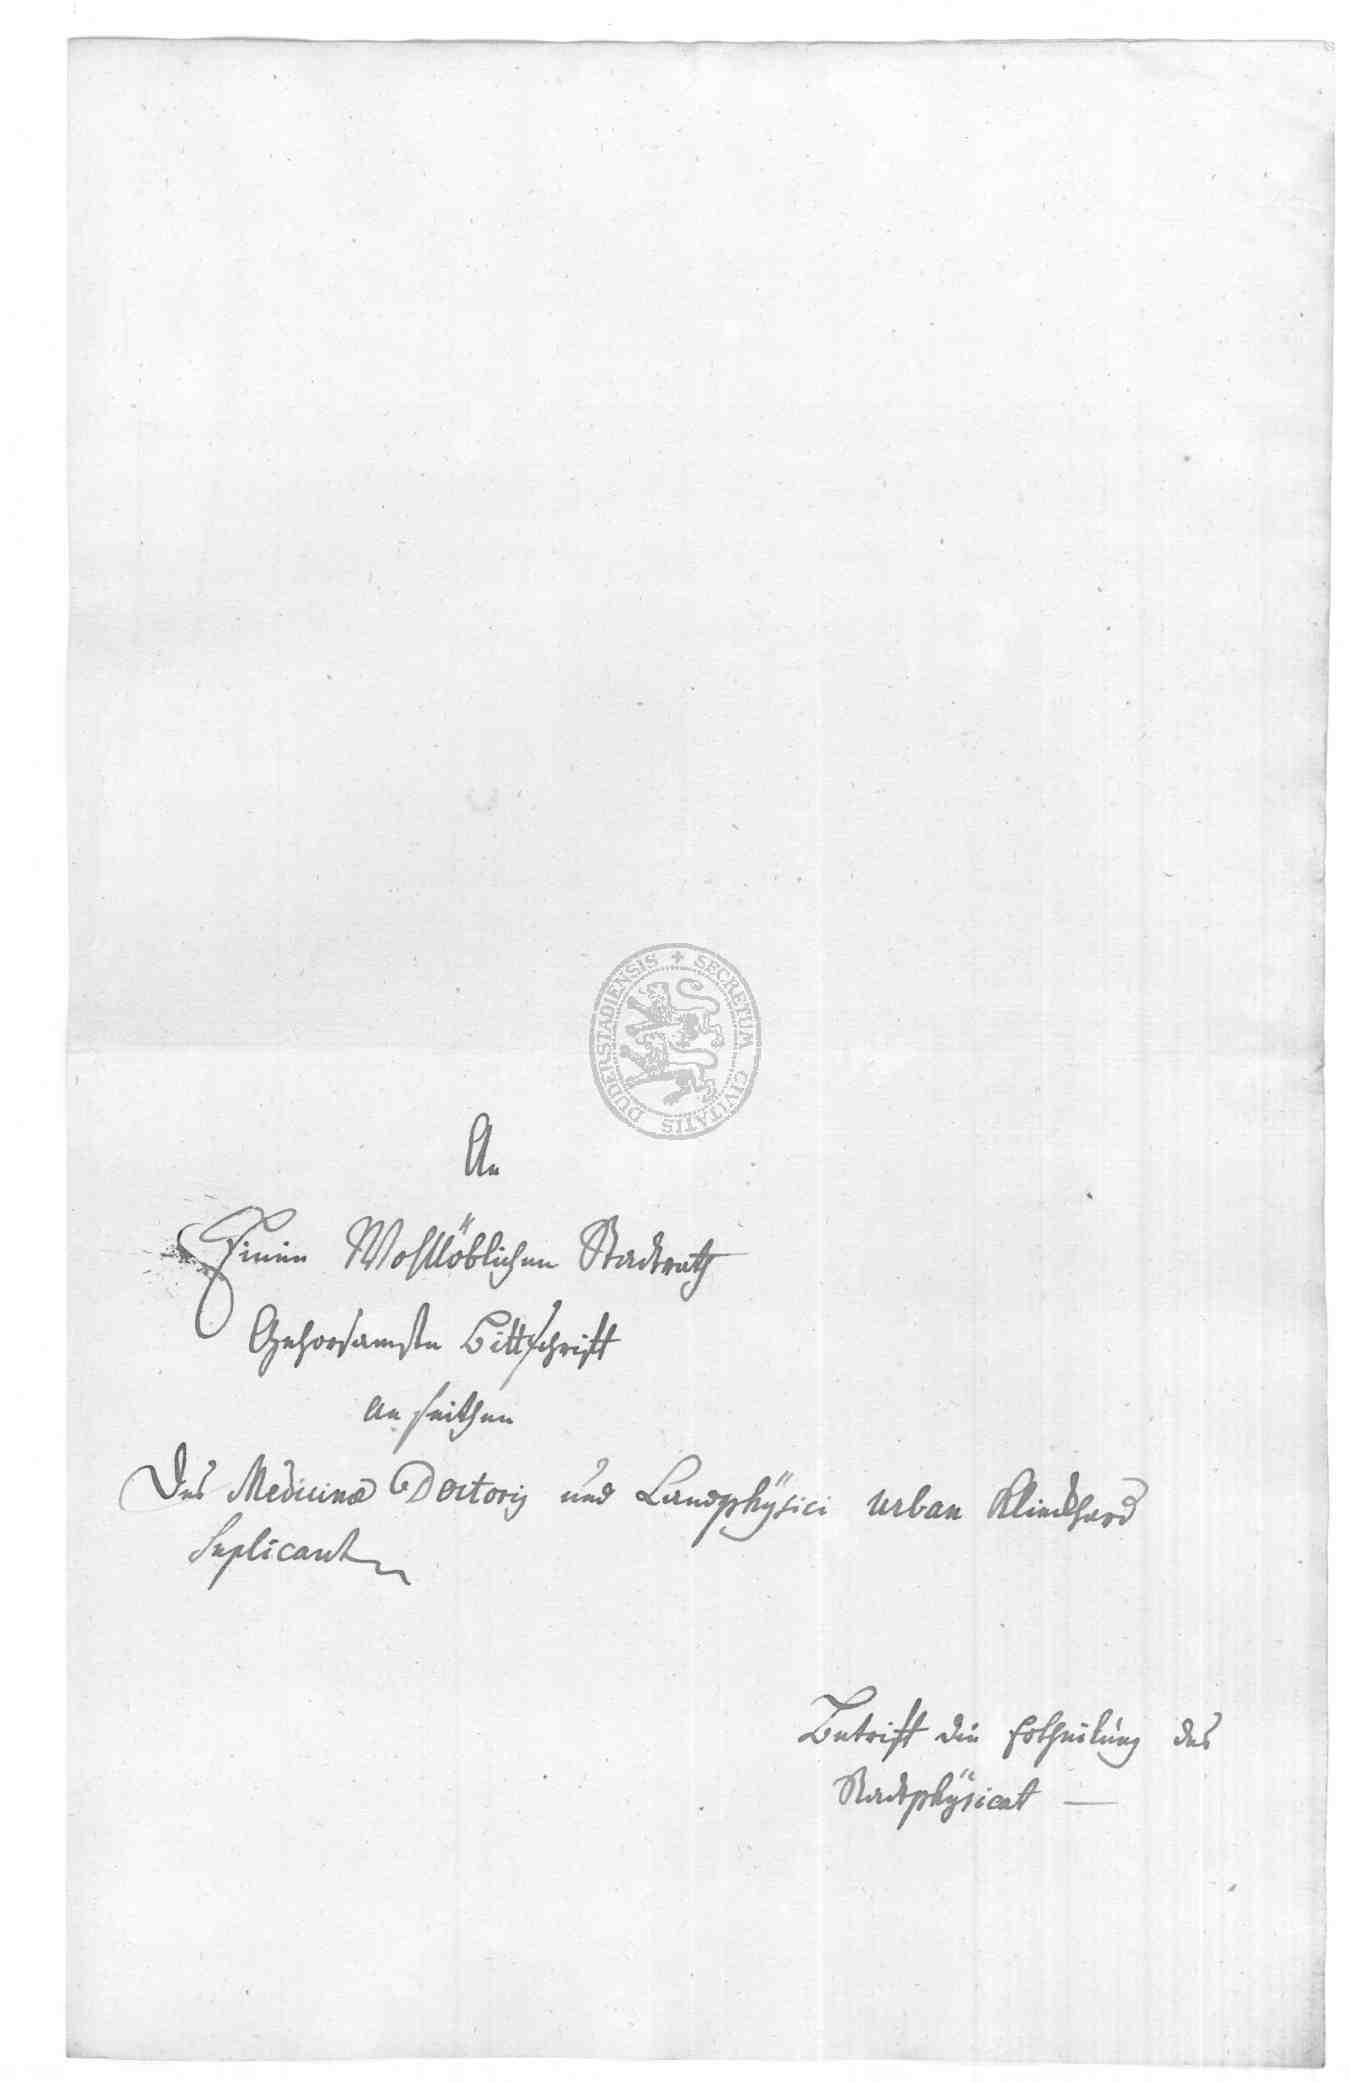 SECRETUM CIVITATIS DUDERSTADIENSIS
An
Einen Wohllöblichen Stadtrath
Gehorsamste Bittschrift
An seithen
Des Medicinæ Doctoris und Landphÿsici Urban Klinckhard
Suplicant
Betrifft die Ertheilung des
Stadtphÿsicat —